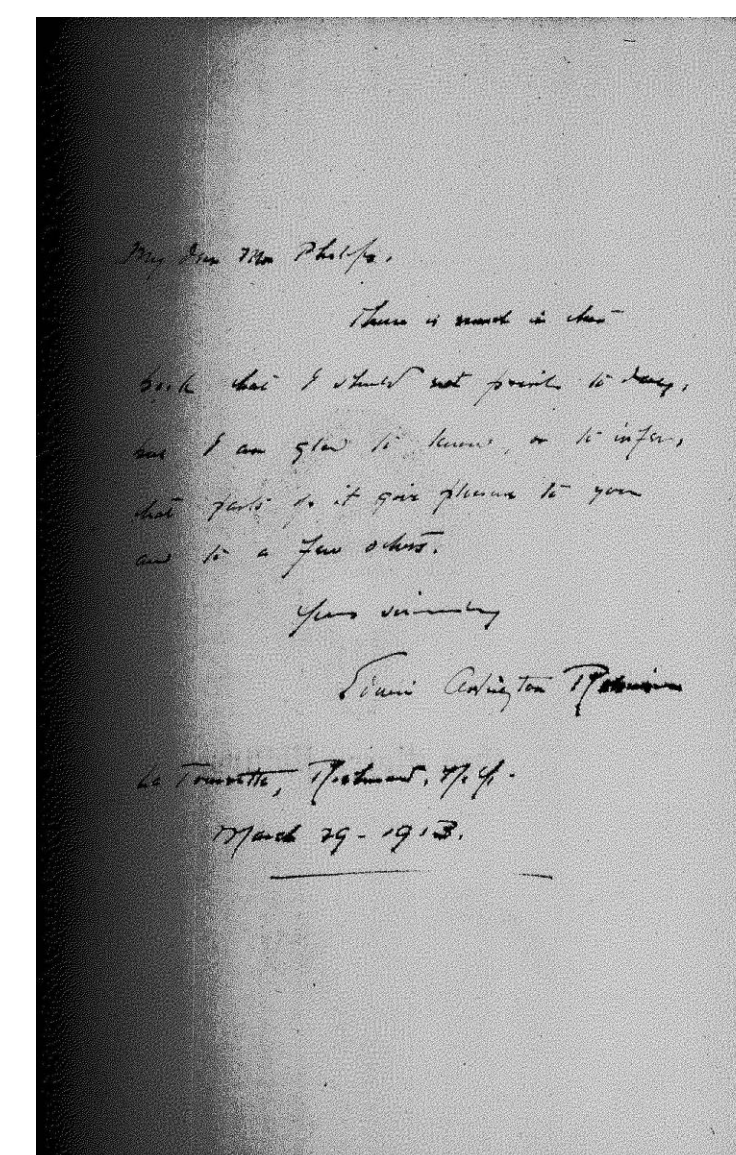 My dear Mr Philips,
There is much in this
book that I should not print to day,
but I am glad to know, or to infer,
that parts of it give pleasure to you
and to a few others.
Yours sincerely
Edwin Arlington Robinson
La Tourette, Richmond, N.Y.
March 29 - 1913.